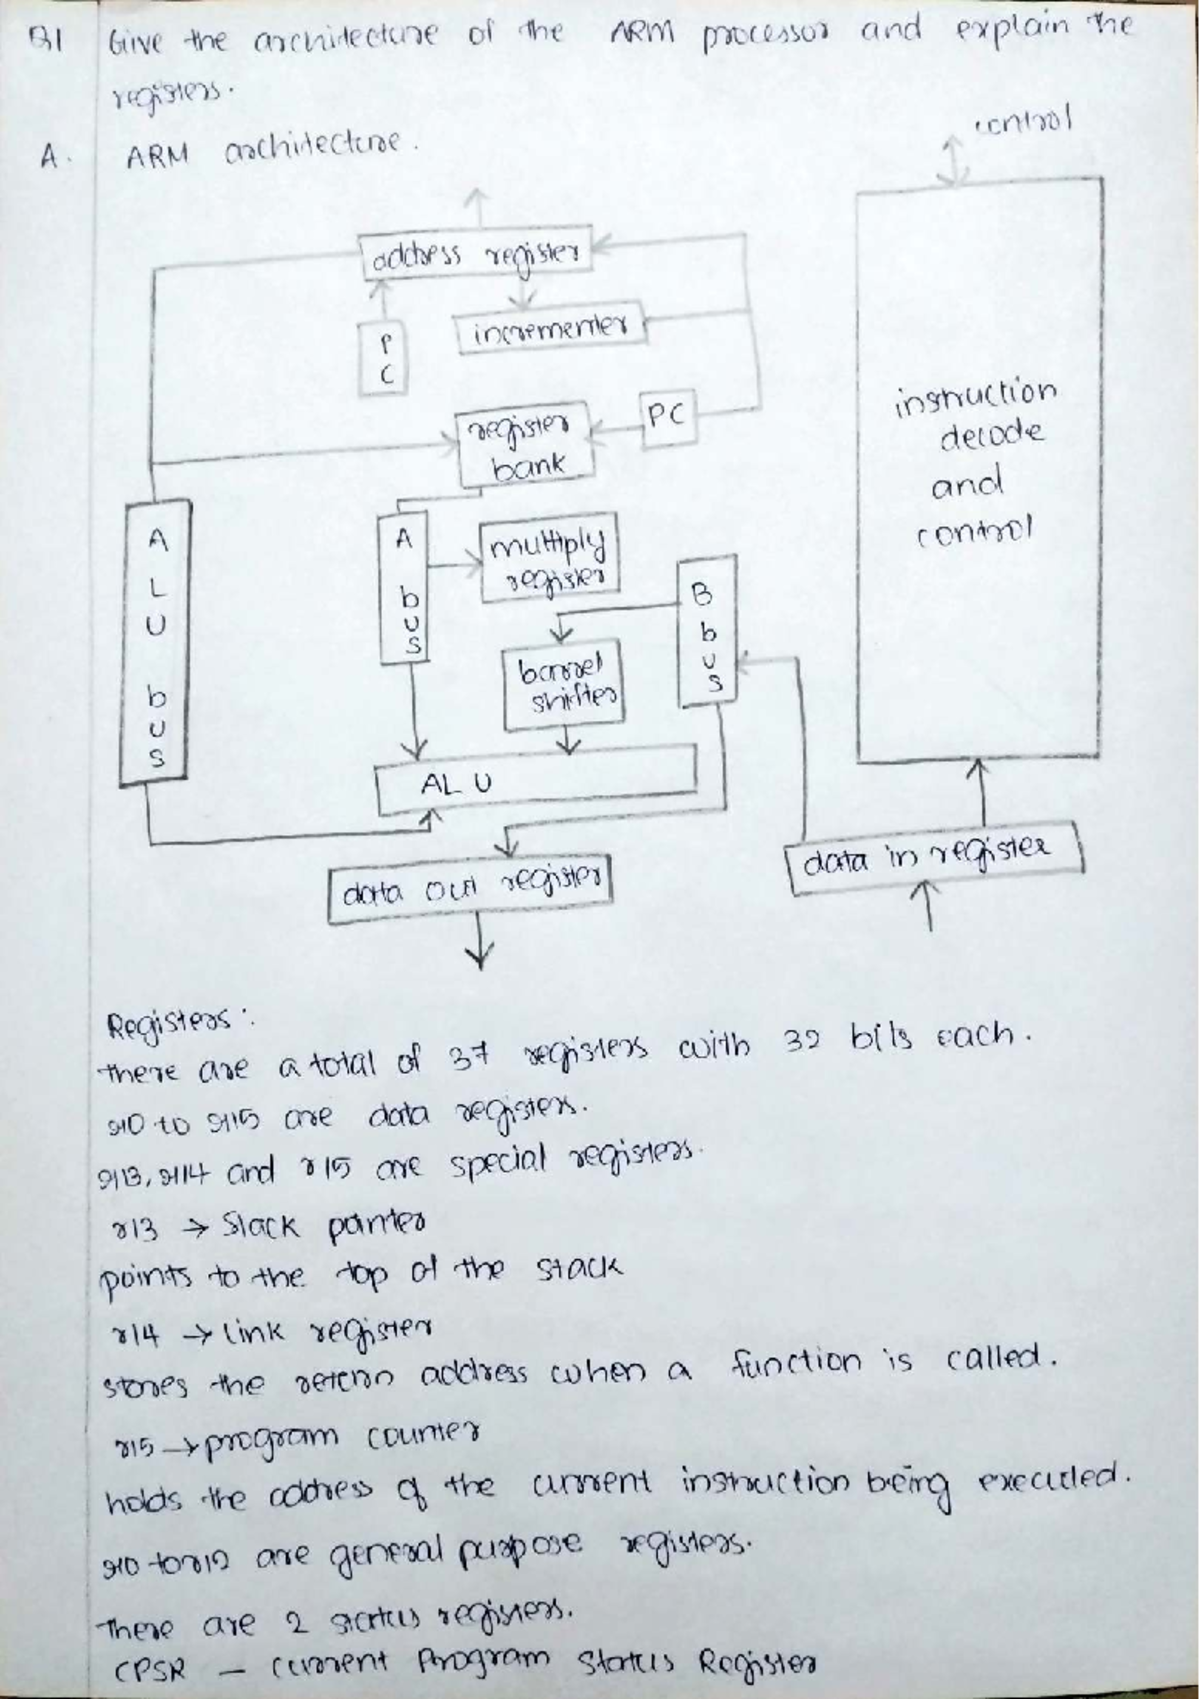 Q1 Give the architecture of the ARM processor and explain the
registers.
A. ARM architecture.
control
address register
incrementer
PC
PC
register
bank
instruction
decode
and
control
ALU bus
A bus
multiply
register
B bus
barrel
shifter
ALU
data in register
data out register
Registers:
There are a total of 37 registers with 32 bits each.
r0 to r15 are data registers.
r13, r14 and r15 are special registers.
r13 → Stack pointer
points to the top of the stack
r14 → link register
stores the return address when a function is called.
r15 → program counter
holds the address of the current instruction being executed.
r0 to r12 are general purpose registers.
There are 2 status registers.
CPSR - Current Program Status Register